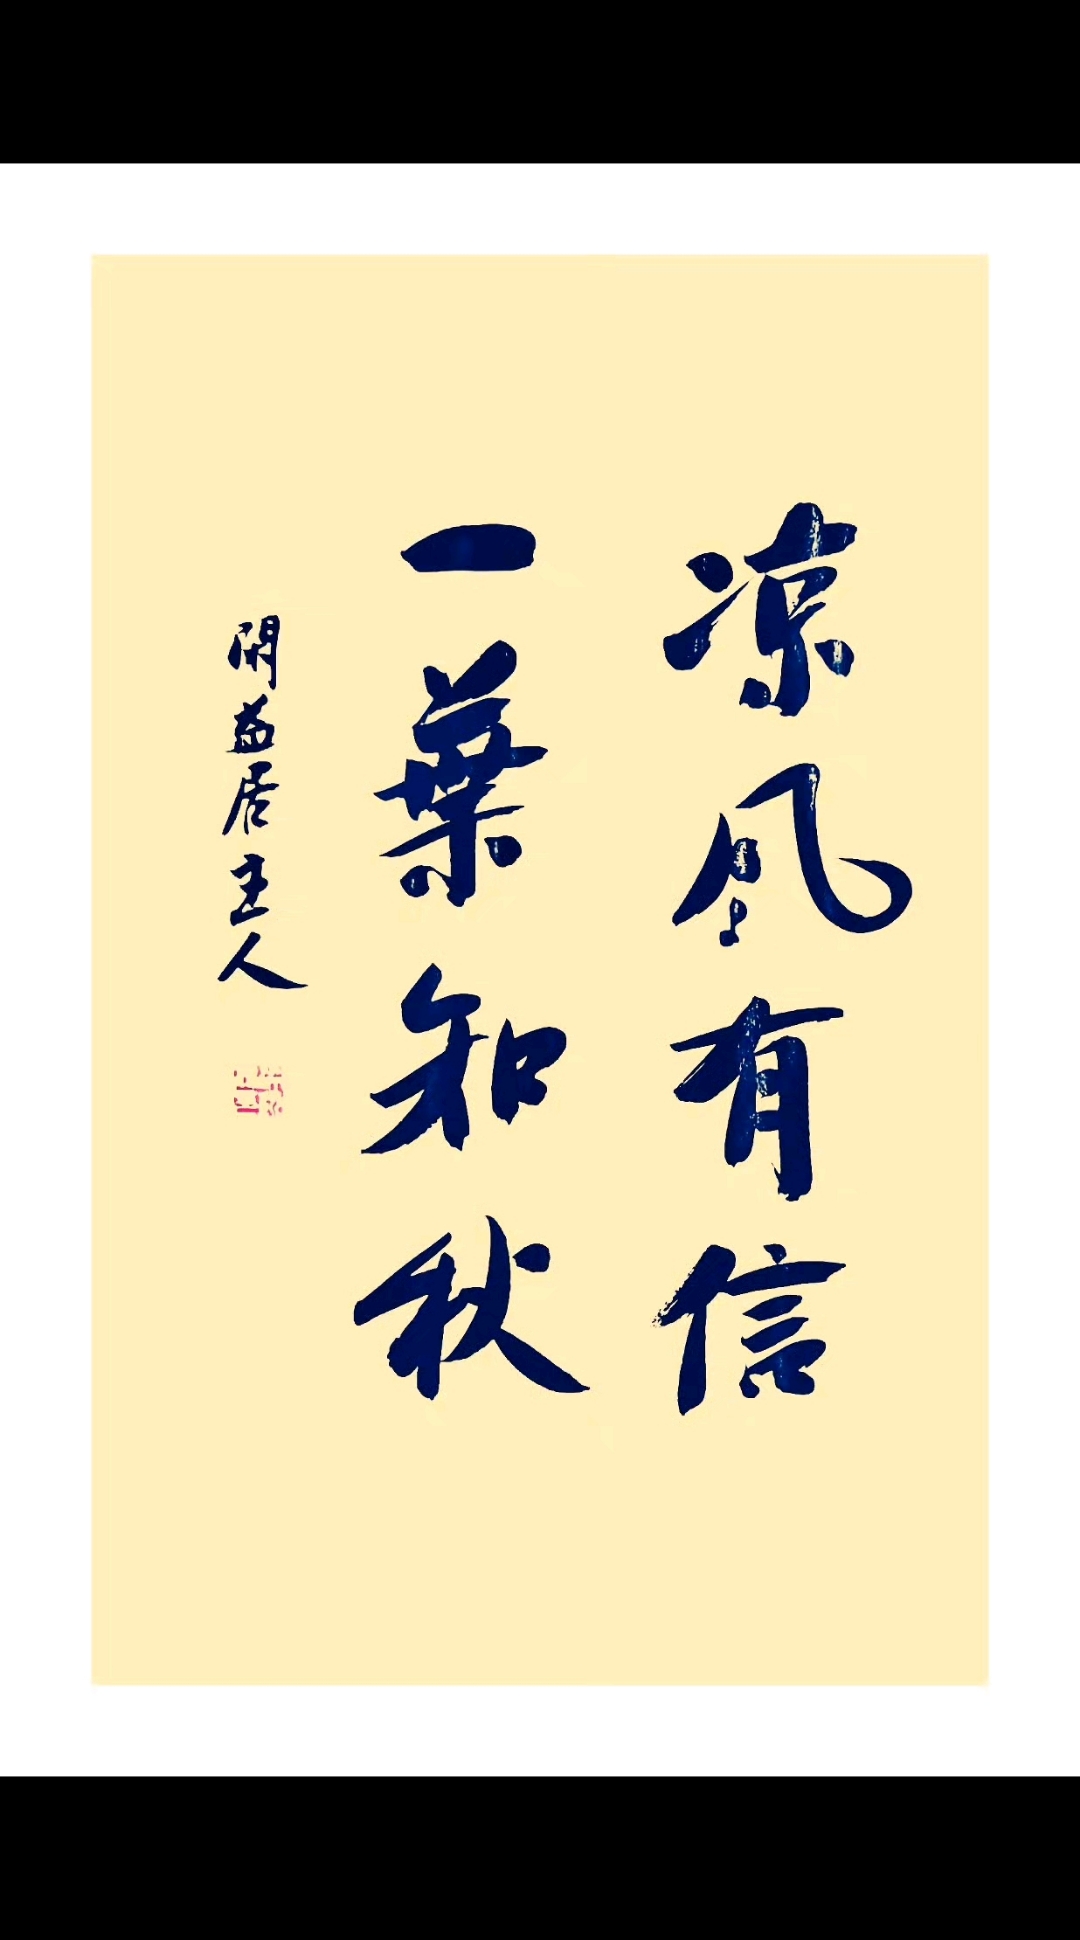 凉风有信
一葉知秋
閑益居主人